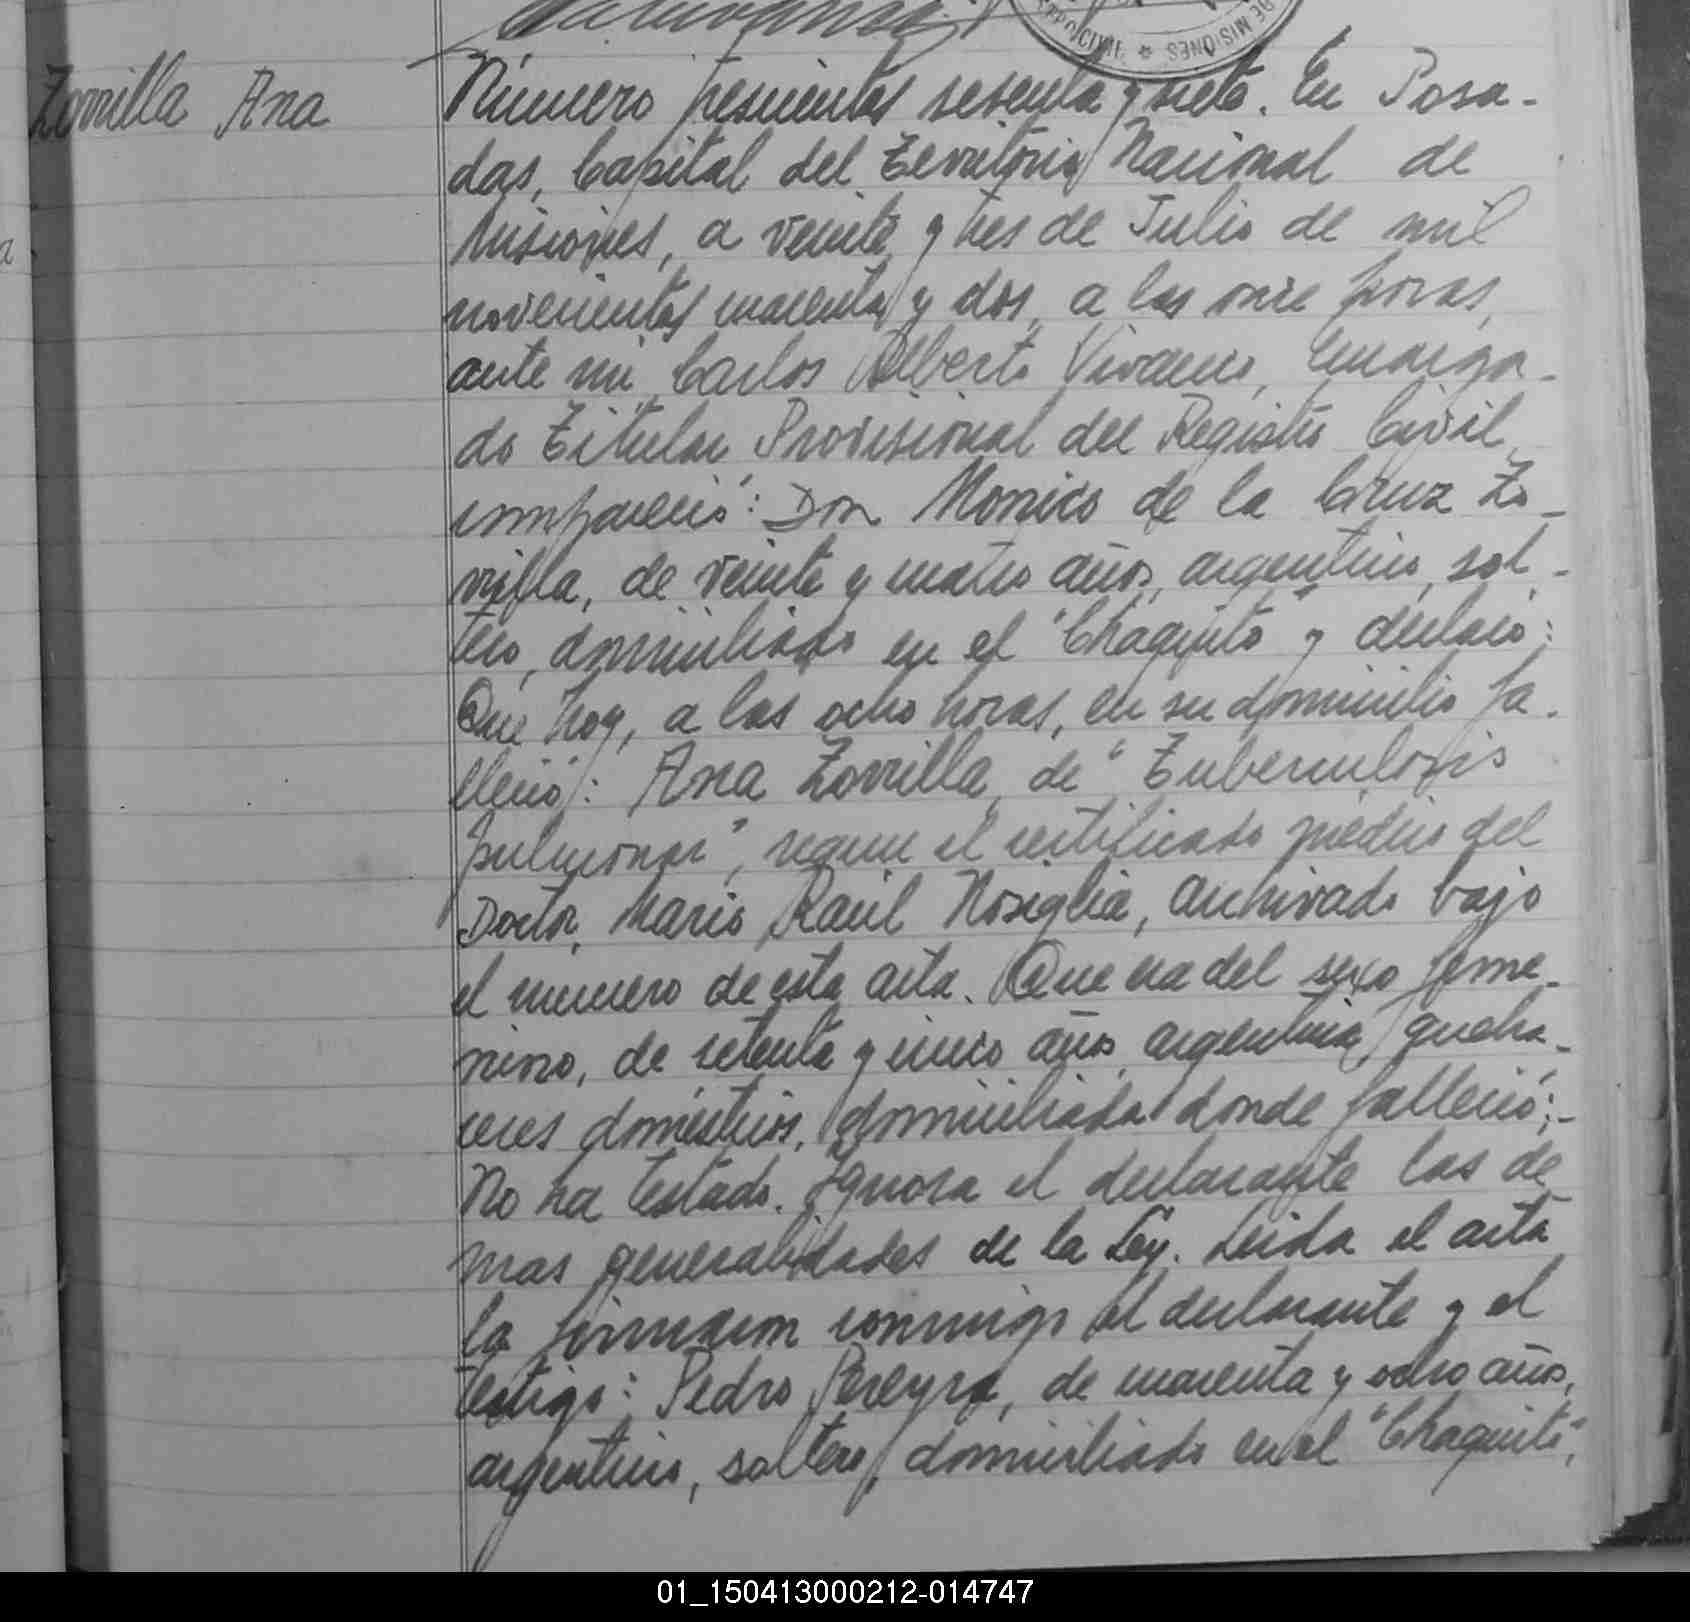 DE MISIONES
Zorrilla Ana
Número trescientos sesenta y siete. En Posa-
das, Capital del Territorio Nacional de
Misiones, a veinte y tres de Julio de mil
novecientos cuarenta y dos, a las once horas,
ante mi Carlos Alberto Vivanco, Encarga-
do Titular Provisional del Registro Civil,
compareció: Don Monico de la Cruz Zo-
rrilla, de veinte y cuatro años, argentino, sol-
tero, domiciliado en el "Chaquito" y declaró:
Que hoy, a las ocho horas, en su domicilio fa-
lleció: Ana Zorrilla, de "Tuberculosis
pulmonar", segun el certificado médico del
Doctor, Mario Raúl Nosiglia, archivado bajo
el numero de esta acta. Que era del sexo feme-
nino, de setenta y cinco años, argentina, queha-
ceres domésticos, domiciliada donde falleció;-
No ha testado. Ignora el declarante las de
mas generalidades de la Ley. Leida el acta
la firmaron conmigo el declarante y el
testigo: Pedro Pereyra, de cuarenta y ocho años,
argentino, soltero, domiciliado en el "Chaquito",
01_150413000212-014747